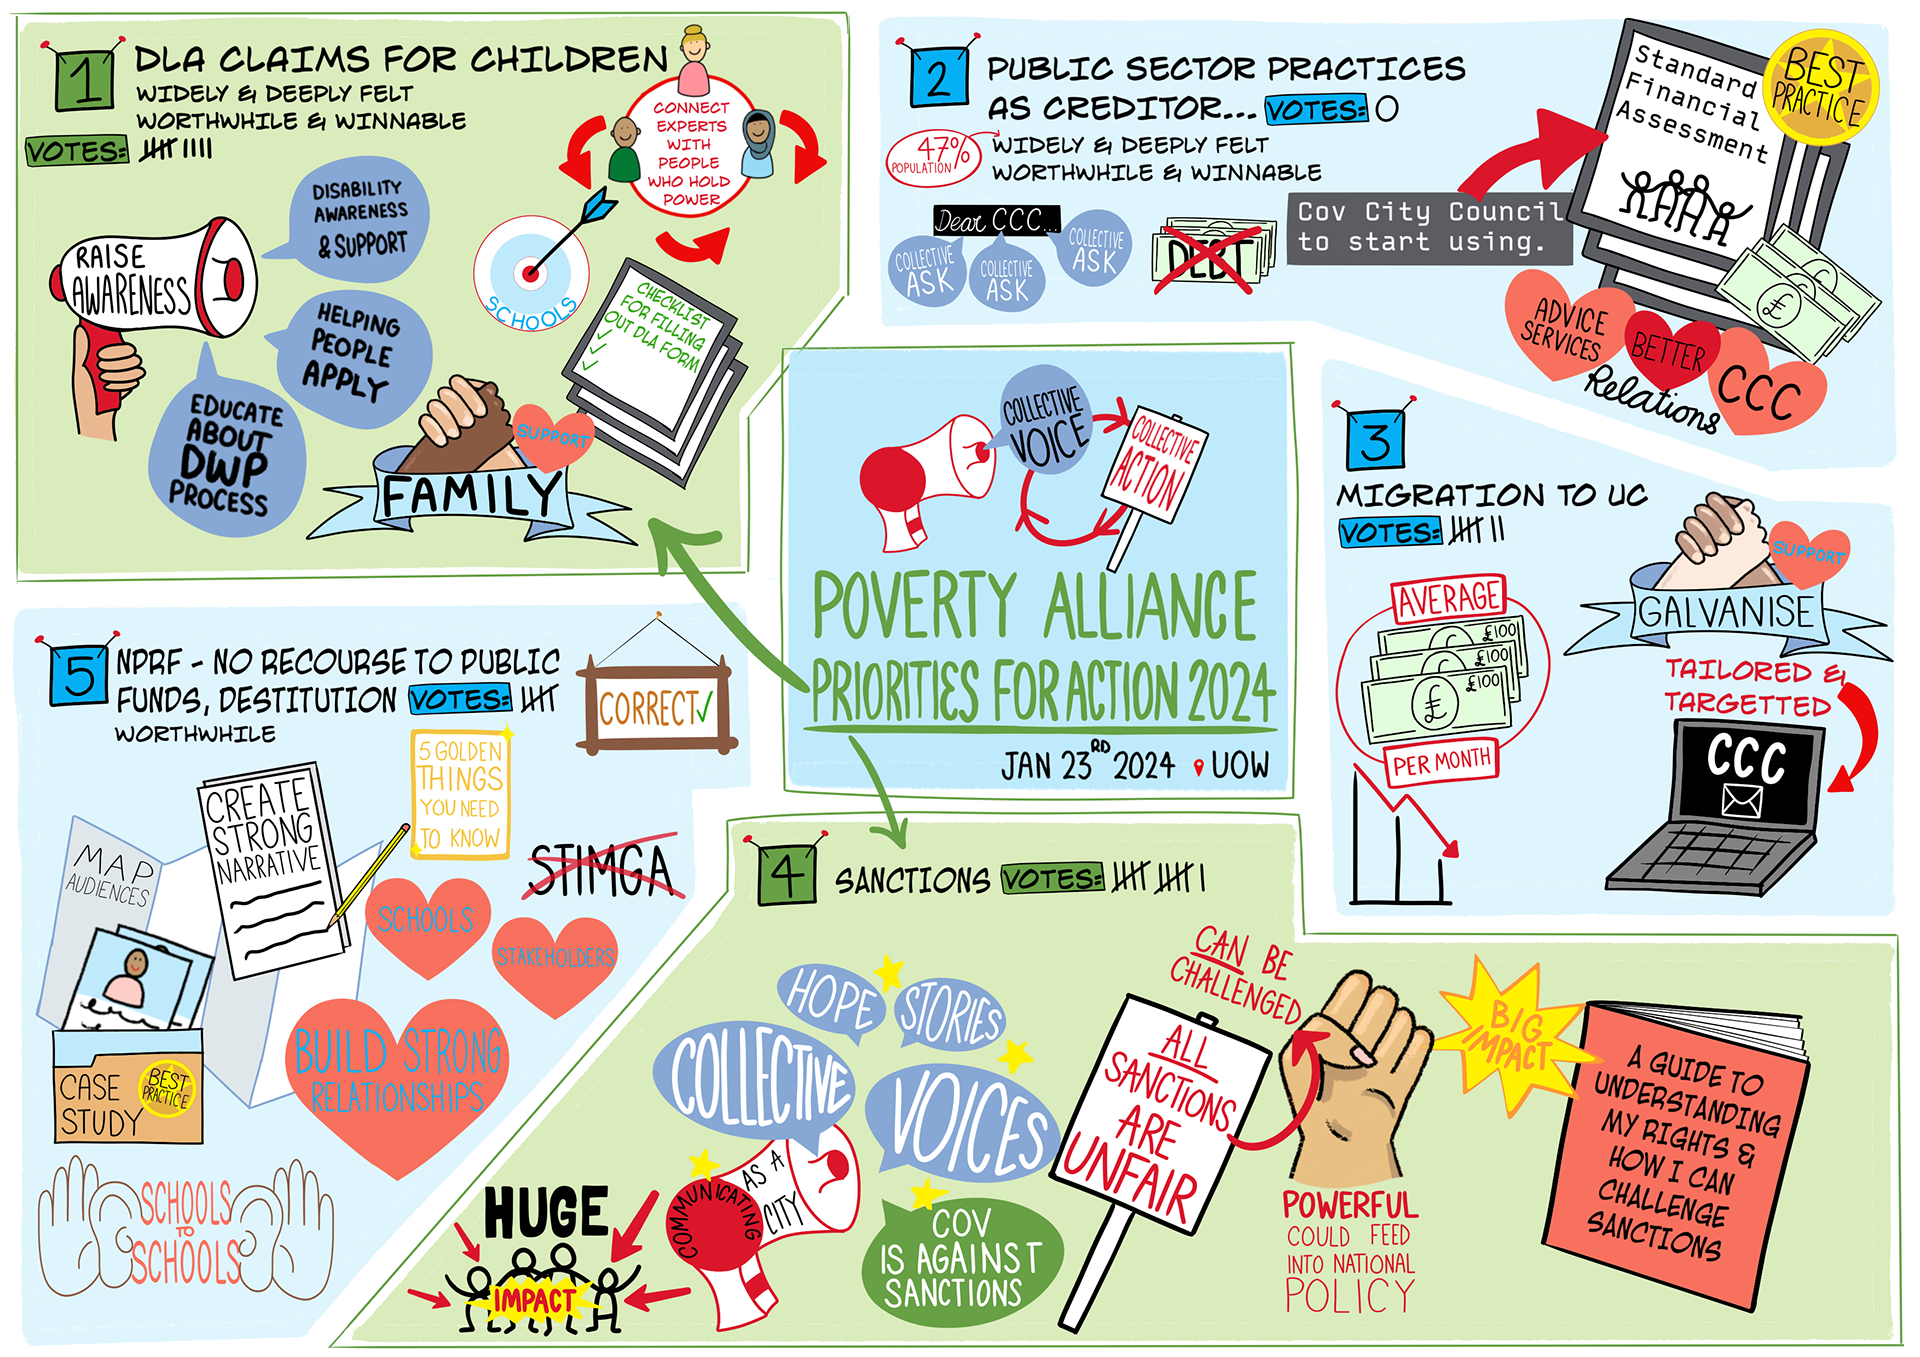 1
DLA CLAIMS FOR CHILDREN
WIDELY & DEEPLY FELT
WORTHWHILE & WINNABLE
VOTES:
CONNECT
EXPERTS
WITH
PEOPLE
WHO HOLD
POWER
RAISE
AWARENESS
DISABILITY
AWARENESS
& SUPPORT
HELPING
PEOPLE
APPLY
EDUCATE
ABOUT
DWP
PROCESS
SCHOOLS
CHECKLIST
FOR FILLING
OUT DLA FORM
SUPPORT
FAMILY
2
PUBLIC SECTOR PRACTICES
AS CREDITOR... VOTES: 0
47%
POPULATION
WIDELY & DEEPLY FELT
WORTHWHILE & WINNABLE
Dear CCC...
COLLECTIVE
ASK
COLLECTIVE
ASK
COLLECTIVE
ASK
DEBT
Cov City Council
to start using.
Standard
Financial
Assessment
BEST
PRACTICE
£
ADVICE
SERVICES
BETTER
Relations
CCC
COLLECTIVE
VOICE
COLLECTIVE
ACTION
POVERTY ALLIANCE
PRIORITIES FOR ACTION 2024
JAN 23RD 2024 UOW
3
MIGRATION TO UC
VOTES:
AVERAGE
£100
£100
£100
£
PER MONTH
SUPPORT
GALVANISE
TAILORED &
TARGETTED
CCC
4
SANCTIONS VOTES:
HOPE
STORIES
COLLECTIVE
VOICES
COMMUNICATING
AS A
CITY
COV
IS AGAINST
SANCTIONS
HUGE
IMPACT
ALL
SANCTIONS
ARE
UNFAIR
CAN BE
CHALLENGED
POWERFUL
COULD FEED
INTO NATIONAL
POLICY
BIG
IMPACT
A GUIDE TO
UNDERSTANDING
MY RIGHTS &
HOW I CAN
CHALLENGE
SANCTIONS
5
NPRF - NO RECOURSE TO PUBLIC
FUNDS, DESTITUTION VOTES:
WORTHWHILE
CORRECT✓
5 GOLDEN
THINGS
YOU NEED
TO KNOW
CREATE
STRONG
NARRATIVE
MAP
AUDIENCES
STIMGA
SCHOOLS
STAKEHOLDERS
BUILD STRONG
RELATIONSHIPS
CASE
STUDY
BEST
PRACTICE
SCHOOLS
TO
SCHOOLS